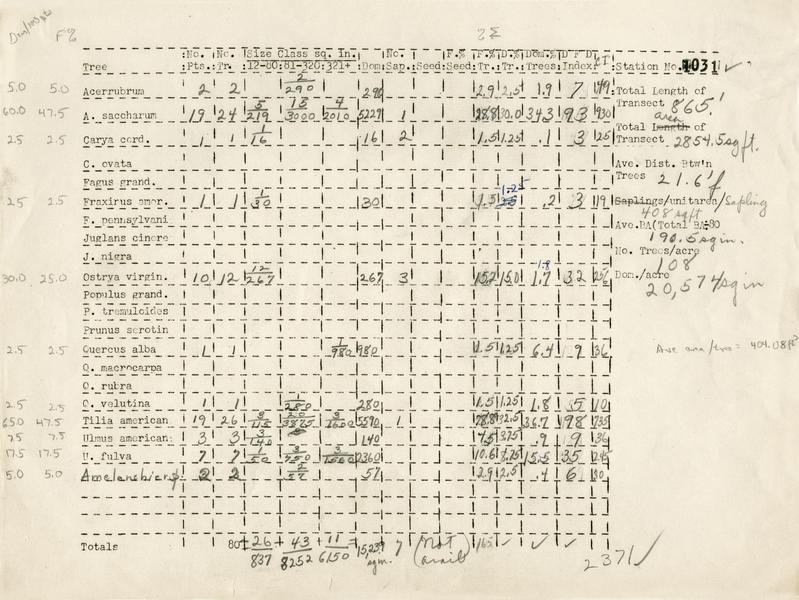 Den/100 pts F% 2Σ
No. No. Size Class sq. In. No. F.% F.% D.% Dom.% D F D
Tree Pts. Tr. 12-80 81-320 321+ Dom Sap. Seed Seed Tr. Tr. Trees Index Station No. 1031 ✓
5.0 5.0 Acerrubrum 2 2 2/290 290 2.9 2.5 1.9 7 49 Total Length of
Transect 865.'
60.0 47.5 A. saccharum 19 24 5/219 15/3000 4/2010 5229 1 28.8 30.0 34.3 93 930 Total Length area of
2.5 2.5 Carya cord. 1 1 1/16 16 2 1.5 1.25 .1 3 25 Transect 2854.5 sq ft.
C. ovata Ave. Dist. Btw'n
Fagus grand. Trees 21.6'
2.5 2.5 Fraxirus amer. 1 1 1/30 30 1.5 1.25 .2 3 19 Saplings/unitarea/Sapling
F. pennsylvani 408 sq ft
Juglans cinere Ave.BA(Total BA÷80
190.5 sq in.
J. nigra No. Trees/acre
108
30.0 25.0 Ostrya virgin. 10 12 12/267 267 3 15.2 15.0 1.8 1.7 32 Dom./acre
Populus grand. 20,574 sq in
P. tremuloides
Prunus serotin
2.5 2.5 Quercus alba 1 1 1/980 980 1.5 1.25 6.4 9 36 Ave area/tree = 404.08 ft²
Q. macrocarpa
Q. rubra
2.5 2.5 Q. velutina 1 1 1/280 280 1.5 1.25 1.8 5 10
65.0 47.5 Tilia american 19 26 3/115 20/3875 3/1600 5590 1 28.8 32.5 36.7 98 735
7.5 7.5 Ulmus american. 3 3 3/140 140 4.5 3.75 .9 9 36
17.5 17.5 U. fulva 7 7 1/50 3/750 3/1560 2360 10.6 8.75 15.5 35 245
5.0 5.0 Amelanchiersp 2 2 2/57 57 2.9 2.5 .4 6 30
Totals 80 26/837 + 43/8252 + 11/6150 15,239 sq in. 7 (Not avail) 165 ✓ ✓ ✓
2371 ✓